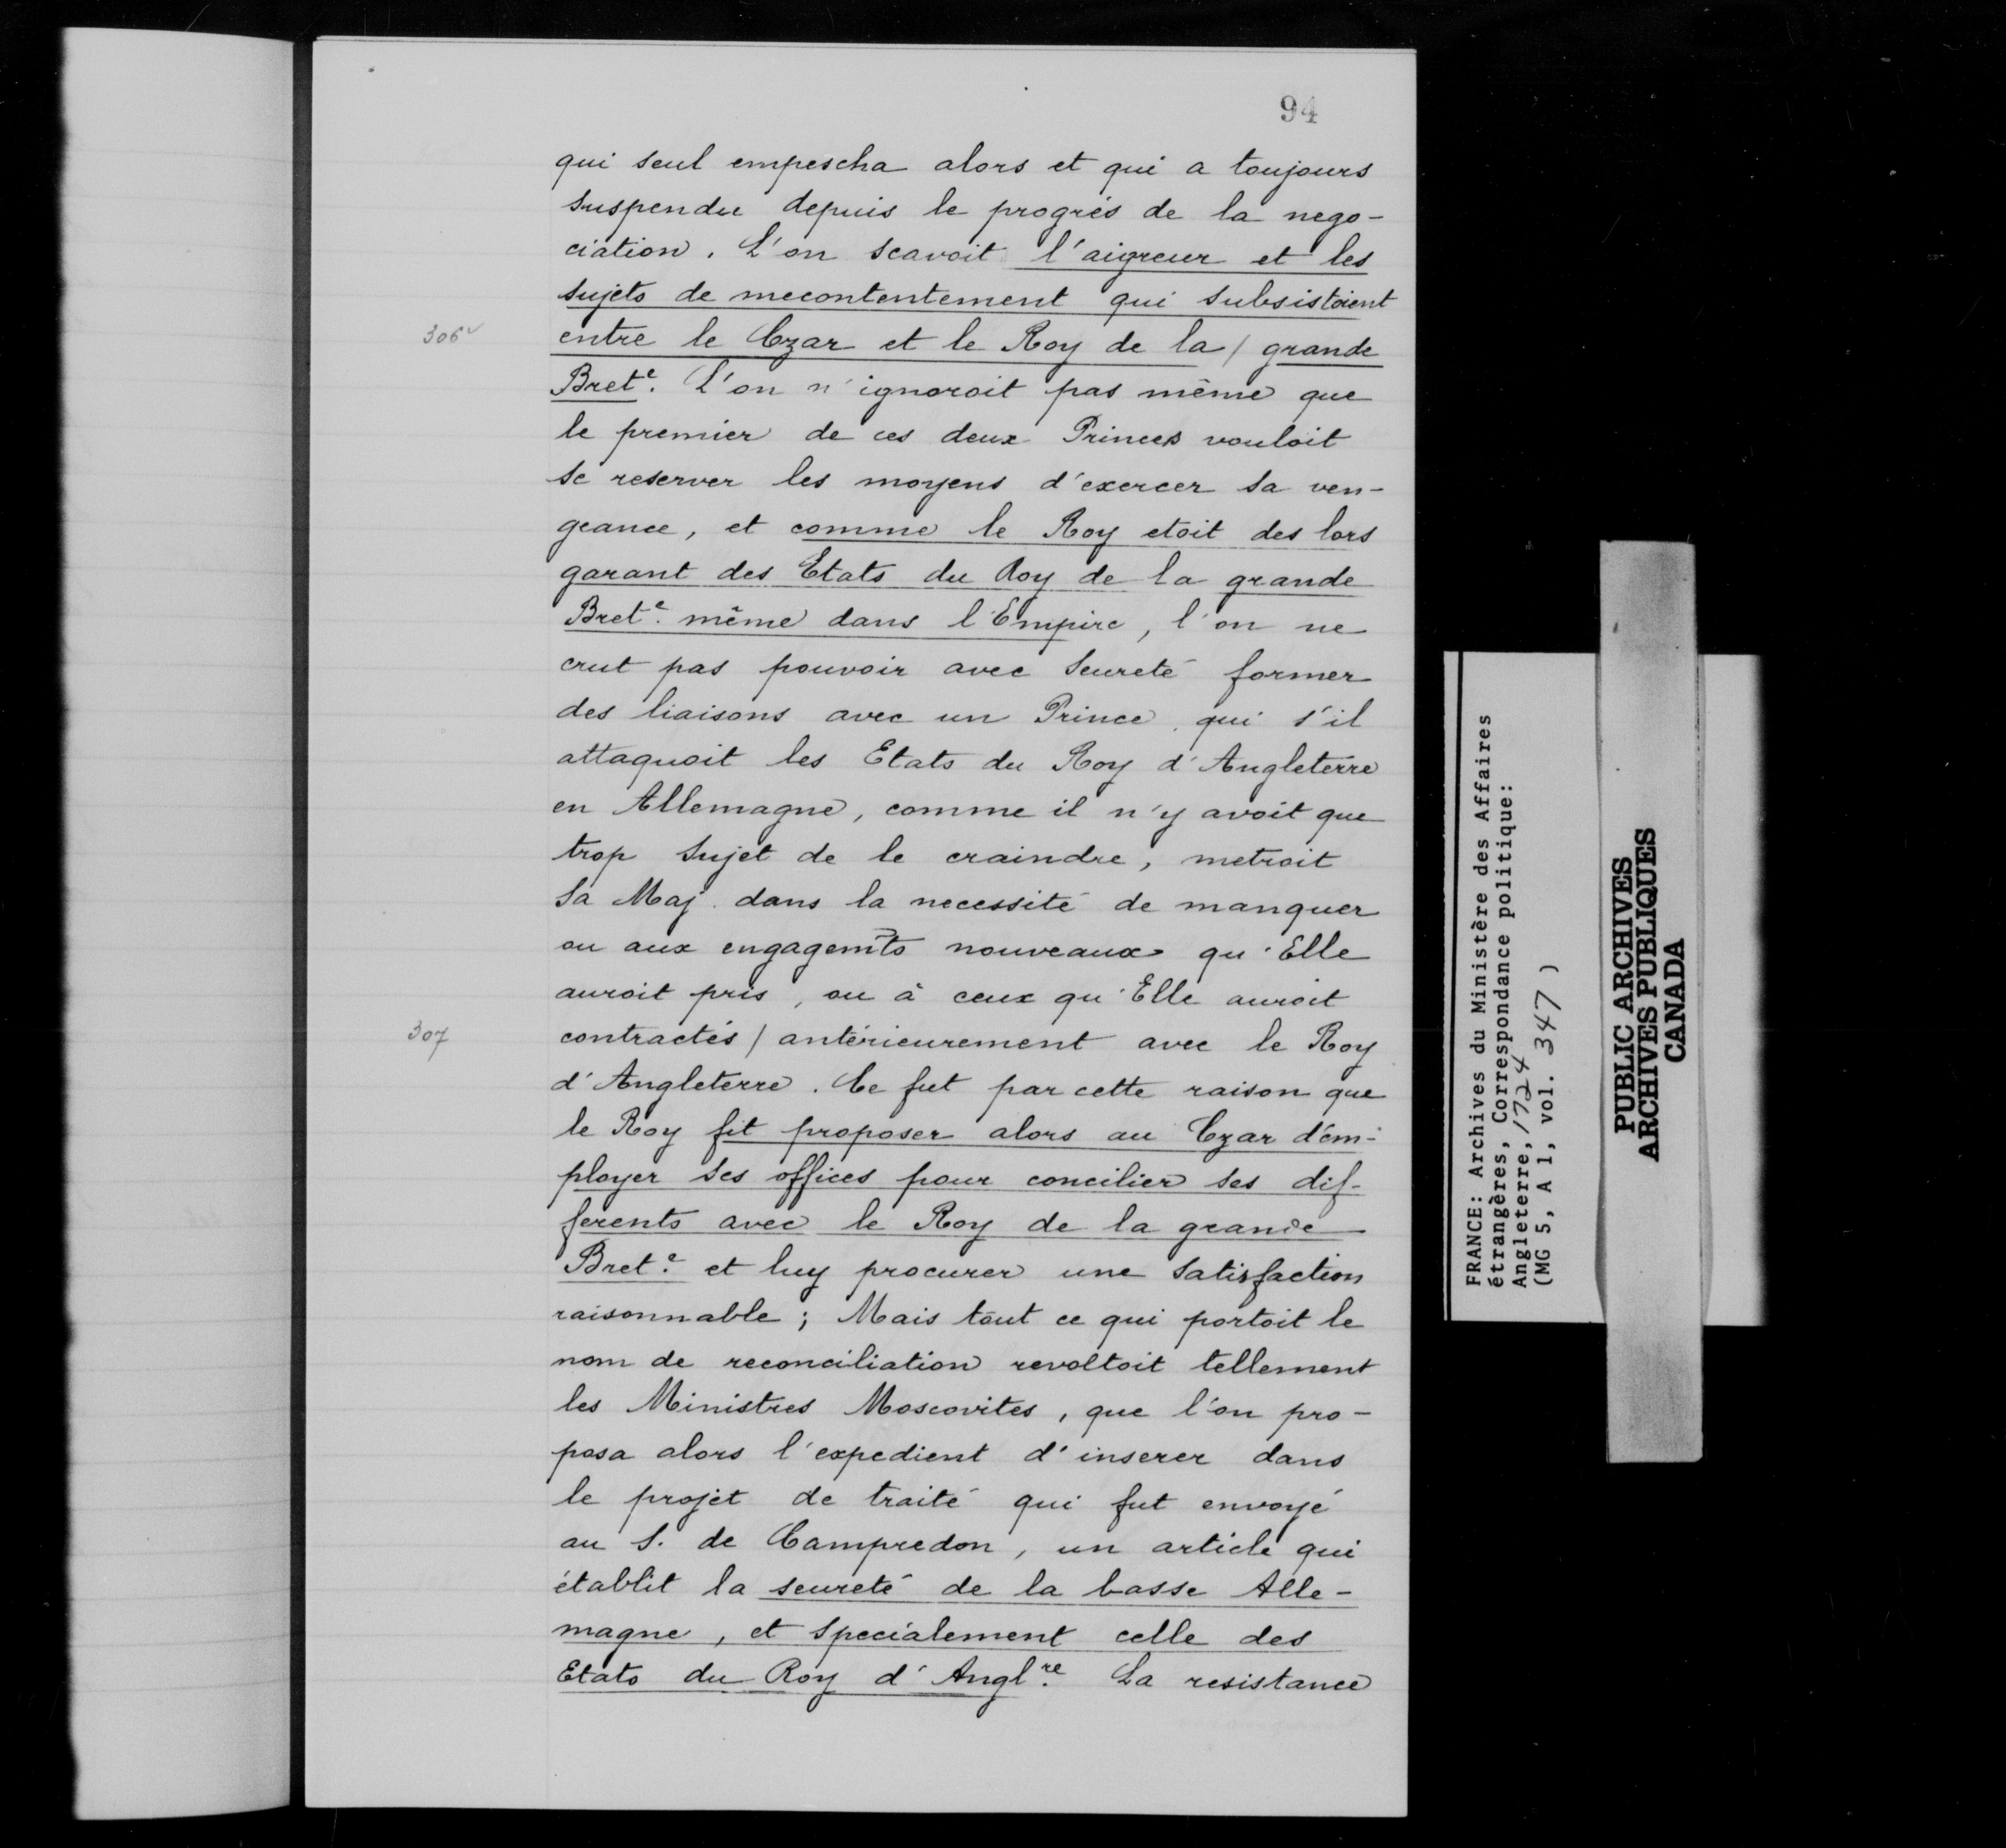 94
qui seul empescha alors et qui a toujours
suspendu depuis le progrés de la nego-
ciation. L'on scavoit l'aigreur et les
sujets de mecontentement qui subsistoient
306v
entre le Czar et le Roy de la / grande
Brete. L'on n'ignoroit pas même que
le premier de ces deux Princes vouloit
se reserver les moyens d'exercer sa ven-
geance, et comme le Roy etoit des lors
garant des Etats du Roy de la grande
Brete. même dans l'Empire, l'on ne
crut pas pouvoir avec seureté former
des liaisons avec un Prince, qui s'il
attaquoit les Etats du Roy d'Angleterre
en Allemagne, comme il n'y avoit que
trop sujet de le craindre, metroit
Sa Maj. dans la necessité de manquer
ou aux engagemts nouveaux qu'Elle
auroit pris, ou à ceux qu'Elle auroit
307
contractés / antérieurement avec le Roy
d'Angleterre. Ce fut par cette raison que
le Roy fit proposer alors au Czar d'em-
ployer ses offices pour concilier ses dif-
ferents avec le Roy de la grande
Brete. et luy procurer une satisfaction
raisonnable ; Mais tout ce qui portoit le
nom de reconciliation revoltoit tellement
les Ministres Moscovites, que l'on pro-
posa alors l'expedient d'inserer dans
le projet de traité qui fut envoyé
au S. de Campredon, un article qui
établit la seureté de la basse Alle-
magne, et specialement celle des
Etats du Roy d'Anglre. La resistance
FRANCE: Archives du Ministère des Affaires
étrangères, Correspondance politique:
Angleterre, 1724
(MG 5, A 1, vol. 347 )
PUBLIC ARCHIVES
ARCHIVES PUBLIQUES
CANADA